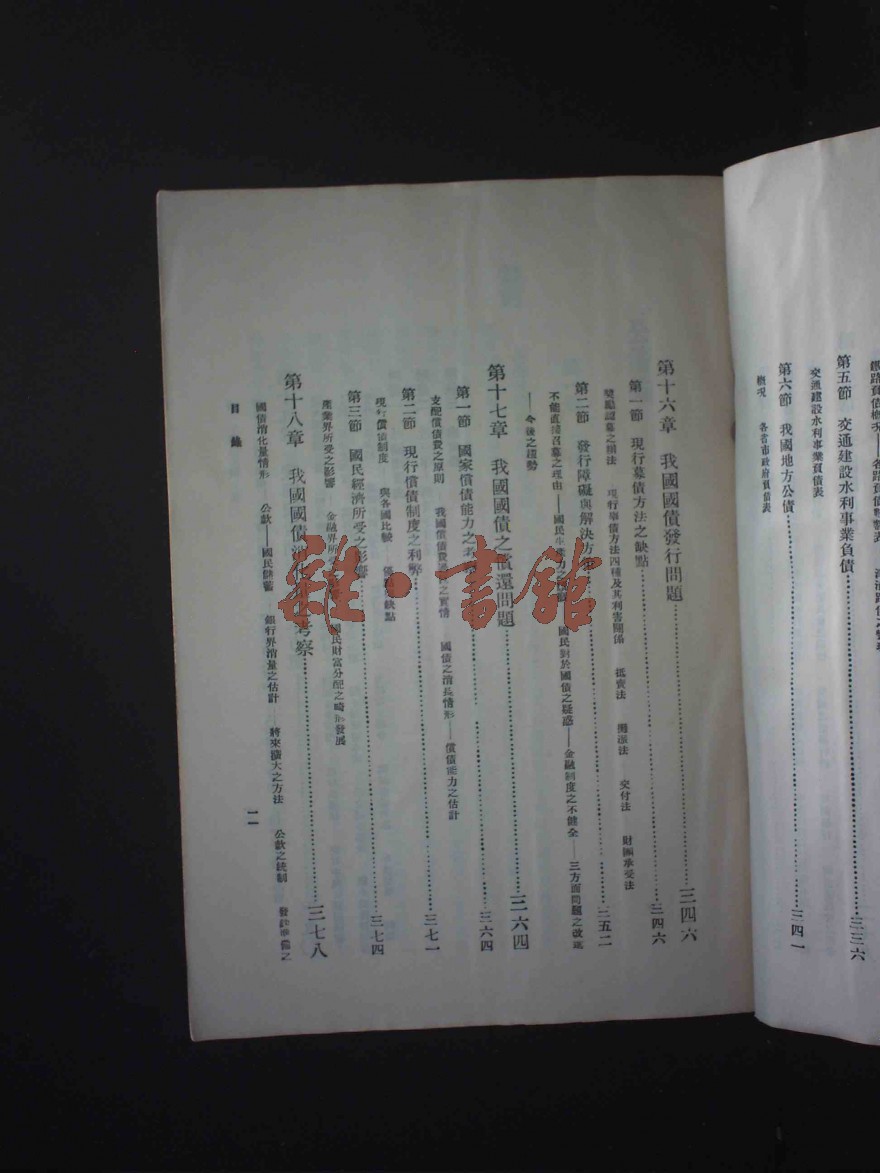 第五節 交通建設水利事業負債……三三六
交通建設水利事業負債表
第六節 我國地方公債……三四一
概況 各省市政府負債表
第十六章 我國國債發行問題……三四六
第一節 現行募債方法之缺點……三四六
獎勵認募之辦法 現行舉債方法四種及其利害關係 抵賣法 攤派法 交付法 財團承受法
第二節 發行障礙與解決方……三五二
不能直接召募之理由——國民 國民對於國債之疑惑——金融制度之不健全——三方面問題之改進
——今後之趨勢
第十七章 我國國債之償還問題……三六四
第一節 國家償債能力之考……三六四
支配償債費之原則 我國償債費 之實情 國債之消長情形——償債能力之估計
第二節 現行償債制度之利弊……三七一
現行償債制度 與各國比較 優 缺點
第三節 國民經濟所受之影響……三七四
產業界所受之影響 金融界所受 國民財富分配之畸形發展
第十八章 我國國債消化 之考察……三七八
國債消化量情形 公款——國民儲蓄 銀行界消量之估計 將來擴大之方法 公款之統制 發鈔準備之
目錄
一一
雜·書館